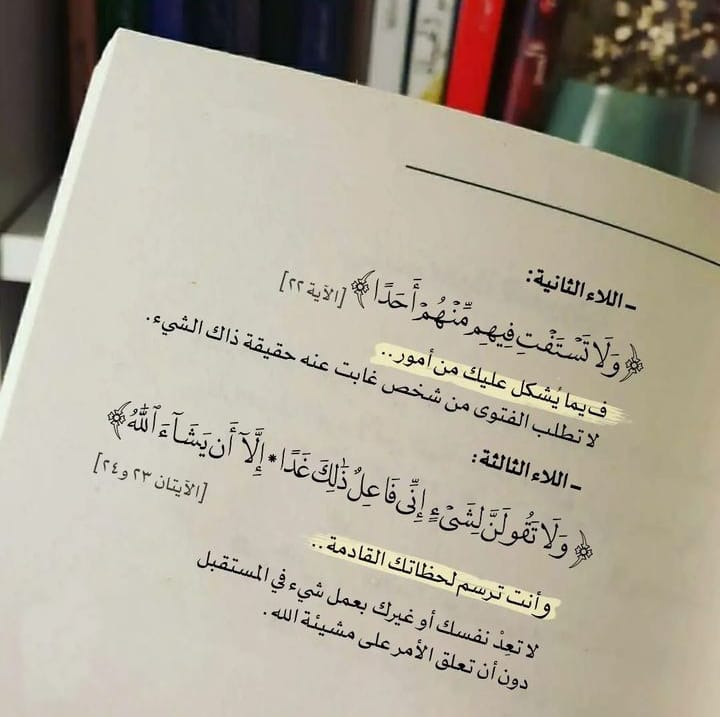 – اللاء الثانية:
﴿وَلَا تَسْتَفْتِ فِيهِم مِّنْهُمْ أَحَدًا﴾ [الآية ٢٢]
فيما يُشكل عليك من أمور..
لا تطلب الفتوى من شخص غابت عنه حقيقة ذاك الشيء.
– اللاء الثالثة:
﴿وَلَا تَقُولَنَّ لِشَيْءٍ إِنِّي فَاعِلٌ ذَٰلِكَ غَدًا * إِلَّآ أَن يَشَآءَ ٱللَّهُ﴾
[الآيتان ٢٣ و٢٤]
وأنت ترسم لحظاتك القادمة..
لا تعِدْ نفسك أو غيرك بعمل شيء في المستقبل
دون أن تعلق الأمر على مشيئة الله.